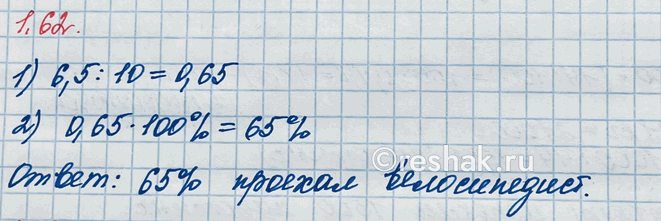 1.62.
1) 6,5 : 10 = 0,65
2) 0,65 · 100% = 65%
©reshak.ru
Ответ: 65% проехал велосипедист.